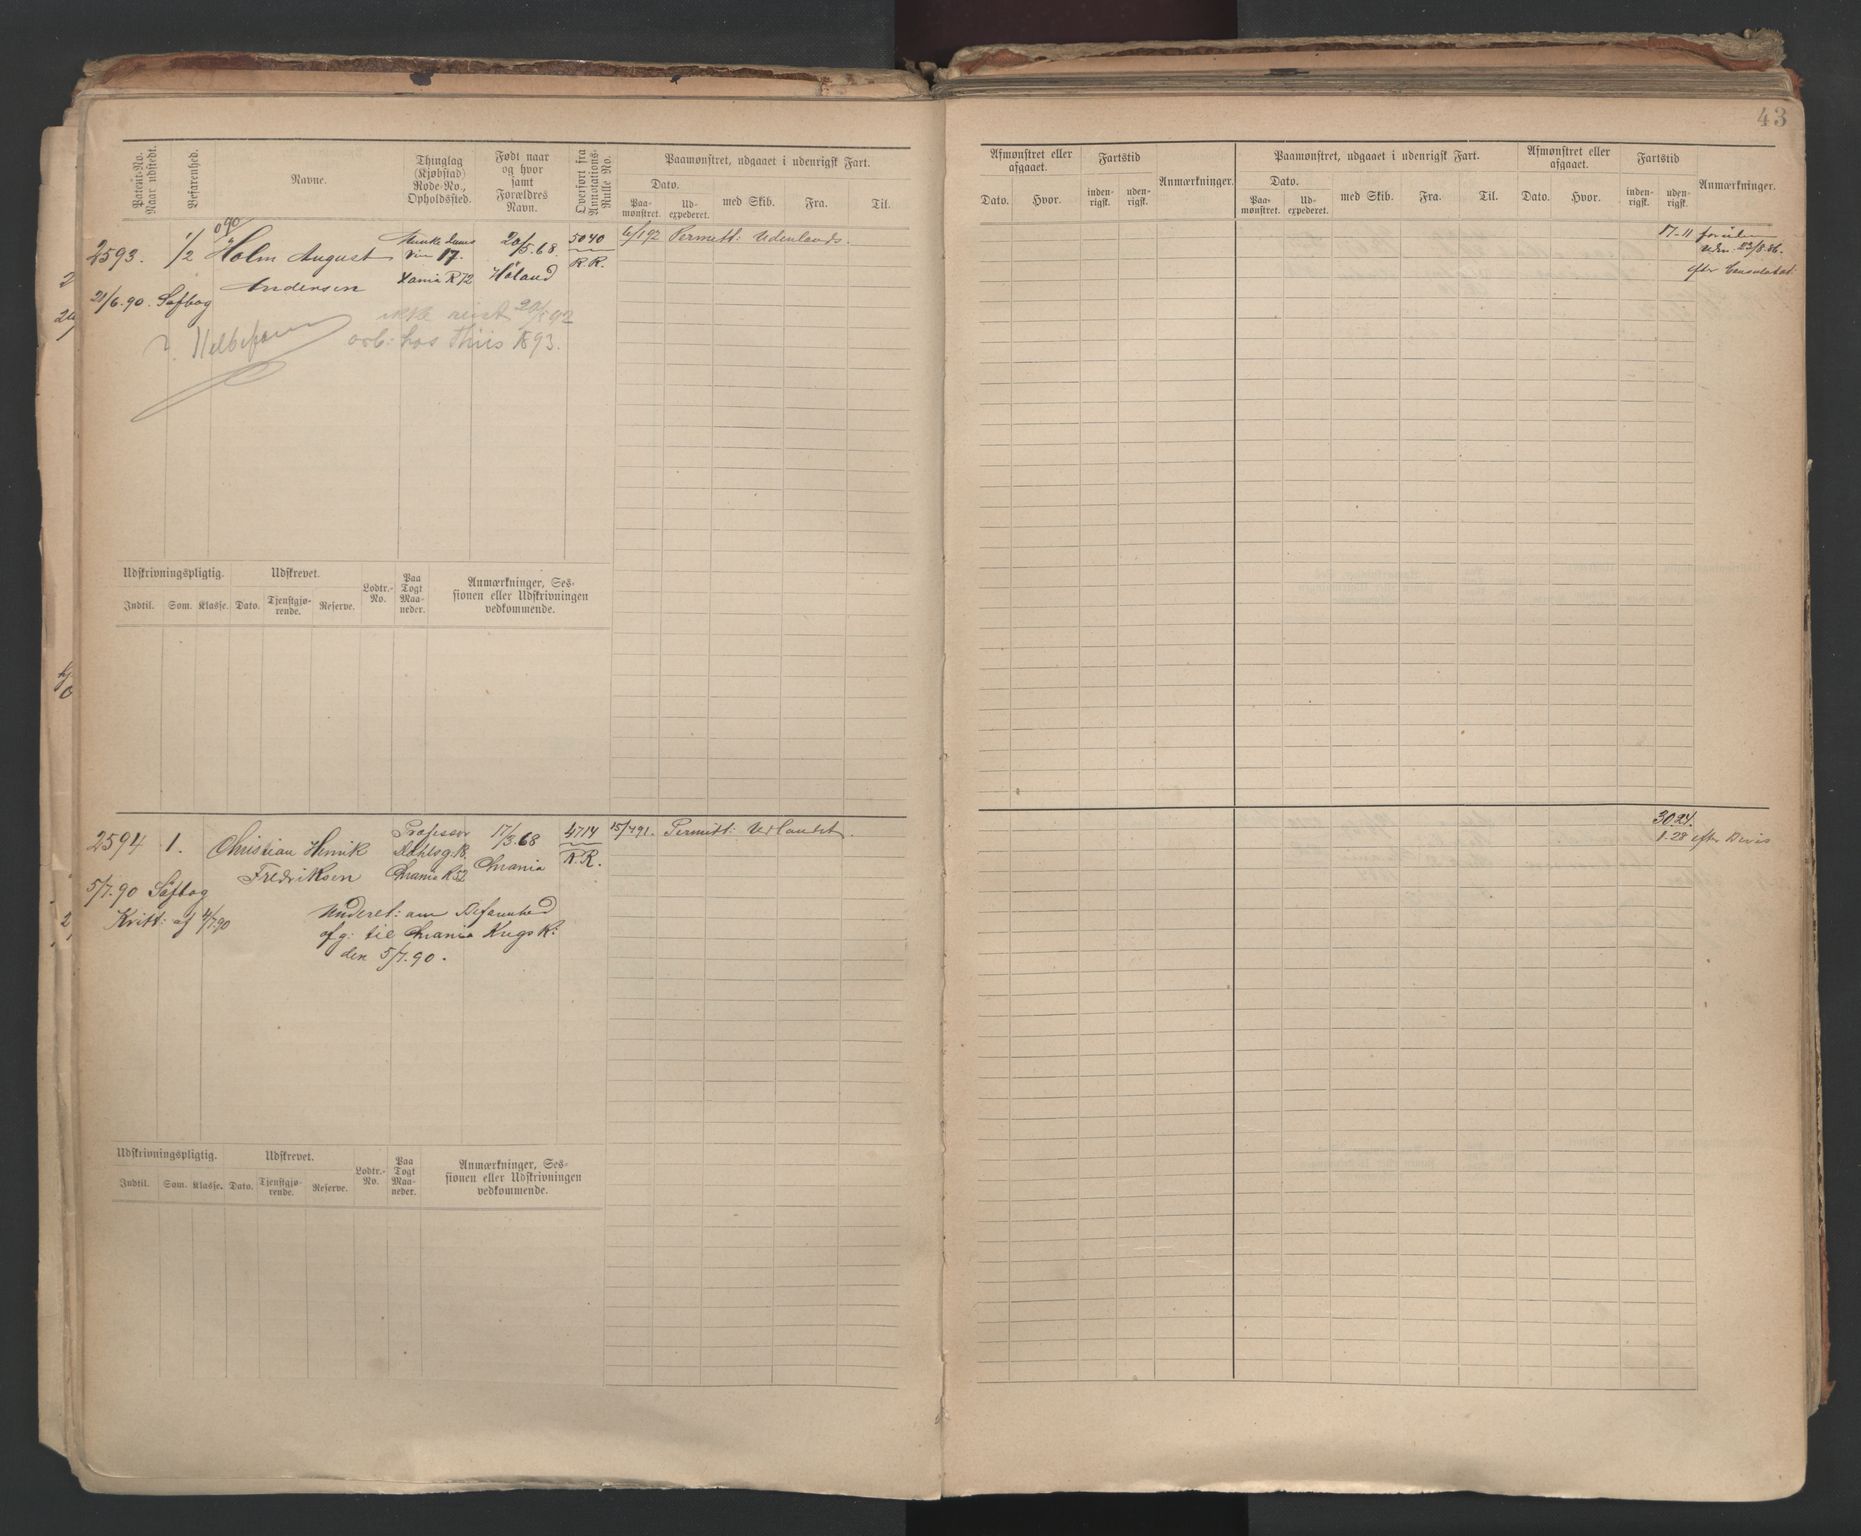 43
Patent-No. Naar udstedt.
Befarenhed.
Navne.
Thinglag (Kjøbstad) Rode-No., Opholdssted.
Født naar og hvor samt Forældres Navn.
Overført fra Annotations-Rulle No.
Paamønstret, udgaaet i udenrigsk Fart.
Dato.
Paamønstret.
Udexpederet.
med Skib.
Fra.
Til.
Afmønstret eller afgaaet.
Dato.
Hvor.
Fartstid
indenrigsk.
udenrigsk.
Anmærkninger.
Paamønstret, udgaaet i udenrigsk Fart.
Dato.
Paamønstret.
Udexpederet.
med Skib.
Fra.
Til.
Afmønstret eller afgaaet.
Dato.
Hvor.
Fartstid
indenrigsk.
udenrigsk.
Anmærkninger.
2593. 1/2 Holm August
Andersen
21/6.90. Søfbog
17.
Xania R 72
20/5.68.
Høland
5040
R.R.
6/1 92 Permitt: Udenlands.
17-11
Uden. 23/8.86.
efter
ikke reist
arb: hos Thiis 1893.
Udskrivningspligtig.
Udskrevet.
Indtil.
Som.
Klasse.
Dato.
Tjenstgjørende.
Reserve.
Lodtr.-No.
Paa Togt Maaneder.
Anmærkninger, Sessionen eller Udskrivningen vedkommende.
2594 1. Christian Henrik
Fredriksen
5/7.90 Søfbog
Kvitt: af 4/7.90
Professor
Dahlsg. 18.
Chrania R 52
17/3.68
Chrania
4714
R.R.
15/4 91. Permitt: Udlandet.
30.24.
1.28 efter Bevis
Underet: om Befarenhed
afg: til Chrania Krigs K:
den 5/7.90.
Udskrivningspligtig.
Udskrevet.
Indtil.
Som.
Klasse.
Dato.
Tjenstgjørende.
Reserve.
Lodtr.-No.
Paa Togt Maaneder.
Anmærkninger, Sessionen eller Udskrivningen vedkommende.